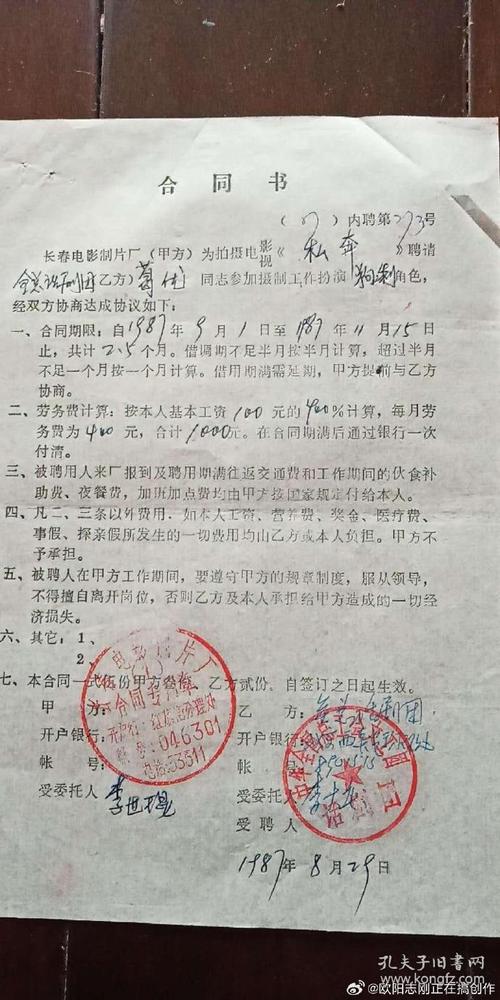 合同书
(87)内聘第273号
长春电影制片厂(甲方)为拍摄电影视《私奔》聘请
全总话剧团(乙方)葛优同志参加摄制工作扮演角色,
经双方协商达成协议如下:
一、合同期限:自1987年9月1日至1987年11月15日
止,共计2.5个月。借调期不足半月按半月计算,超过半月
不足一个月按一个月计算。借用期满需延期,甲方提前与乙方
协商。
二、劳务费计算:按本人基本工资100元的400%计算,每月劳
务费为400元,合计1000元。在合同期满后通过银行一次
付清。
三、被聘用人来厂报到及聘用期满往返交通费和工作期间的伙食补
助费、夜餐费,加班加点费均由甲方按国家规定付给本人。
四、凡二、三条以外费用.如本人工资、营养费、奖金、医疗费、
事假、探亲假所发生的一切费用均由乙方或本人负担。甲方不
予承担。
五、被聘人在甲方工作期间,要遵守甲方的规章制度,服从领导,
不得擅自离开岗位,否则乙方及本人承担给甲方造成的一切经
济损失。
六、其它:1、
2、
七、本合同一式伍份甲方叁份,乙方贰份,自签订之日起生效。
甲方:
乙方:全总话剧团
开户银行:
开户银行:
帐号:
帐号:
受委托人
李世
受委托人
受聘人
电影制片厂
合同专用章
046301
电话53311
1987年8月29日
孔夫子旧书网
www.kongfz.com
@欧阳志刚正在搞创作